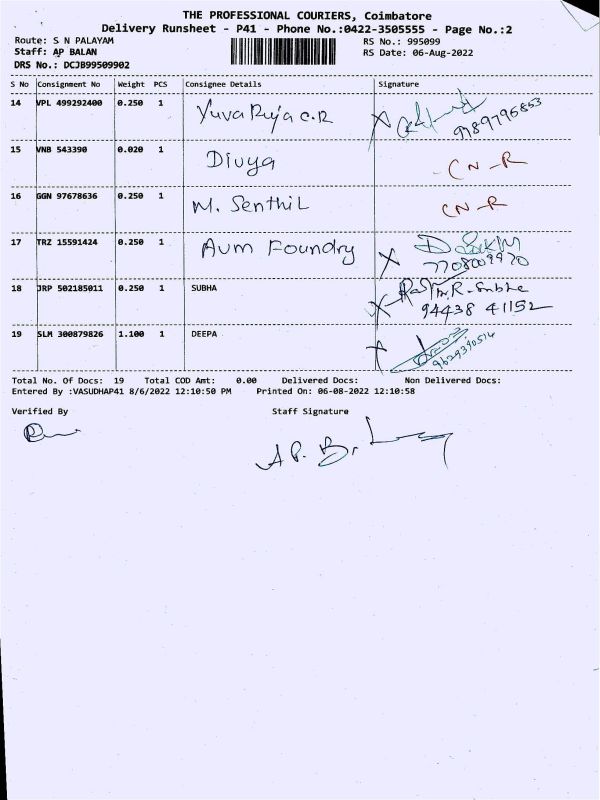 THE PROFESSIONAL COURIERS, Coimbatore
Delivery Runsheet - P41 - Phone No.:0422-3505555 - Page No.:2
Route: S N PALAYAM
RS No.: 995099
Staff: AP BALAN
RS Date: 06-Aug-2022
DRS No.: DCJB99509902
S No Consignment No Weight PCS Consignee Details Signature
14 VPL 499292400 0.250 1 Yuva Ruja C.R 9789796853
15 VNB 543390 0.020 1 Divya - CN-R
16 GGN 97678636 0.250 1 M. Senthil CN-R
17 TRZ 15591424 0.250 1 Aum Foundry X
7708009970
18 JRP 502185011 0.250 1 SUBHA X R. Subha
94438 41152
19 SLM 300879826 1.100 1 DEEPA X 9629390514
Total No. Of Docs: 19 Total COD Amt: 0.00 Delivered Docs: Non Delivered Docs:
Entered By :VASUDHAP41 8/6/2022 12:10:50 PM Printed On: 06-08-2022 12:10:58
Verified By Staff Signature